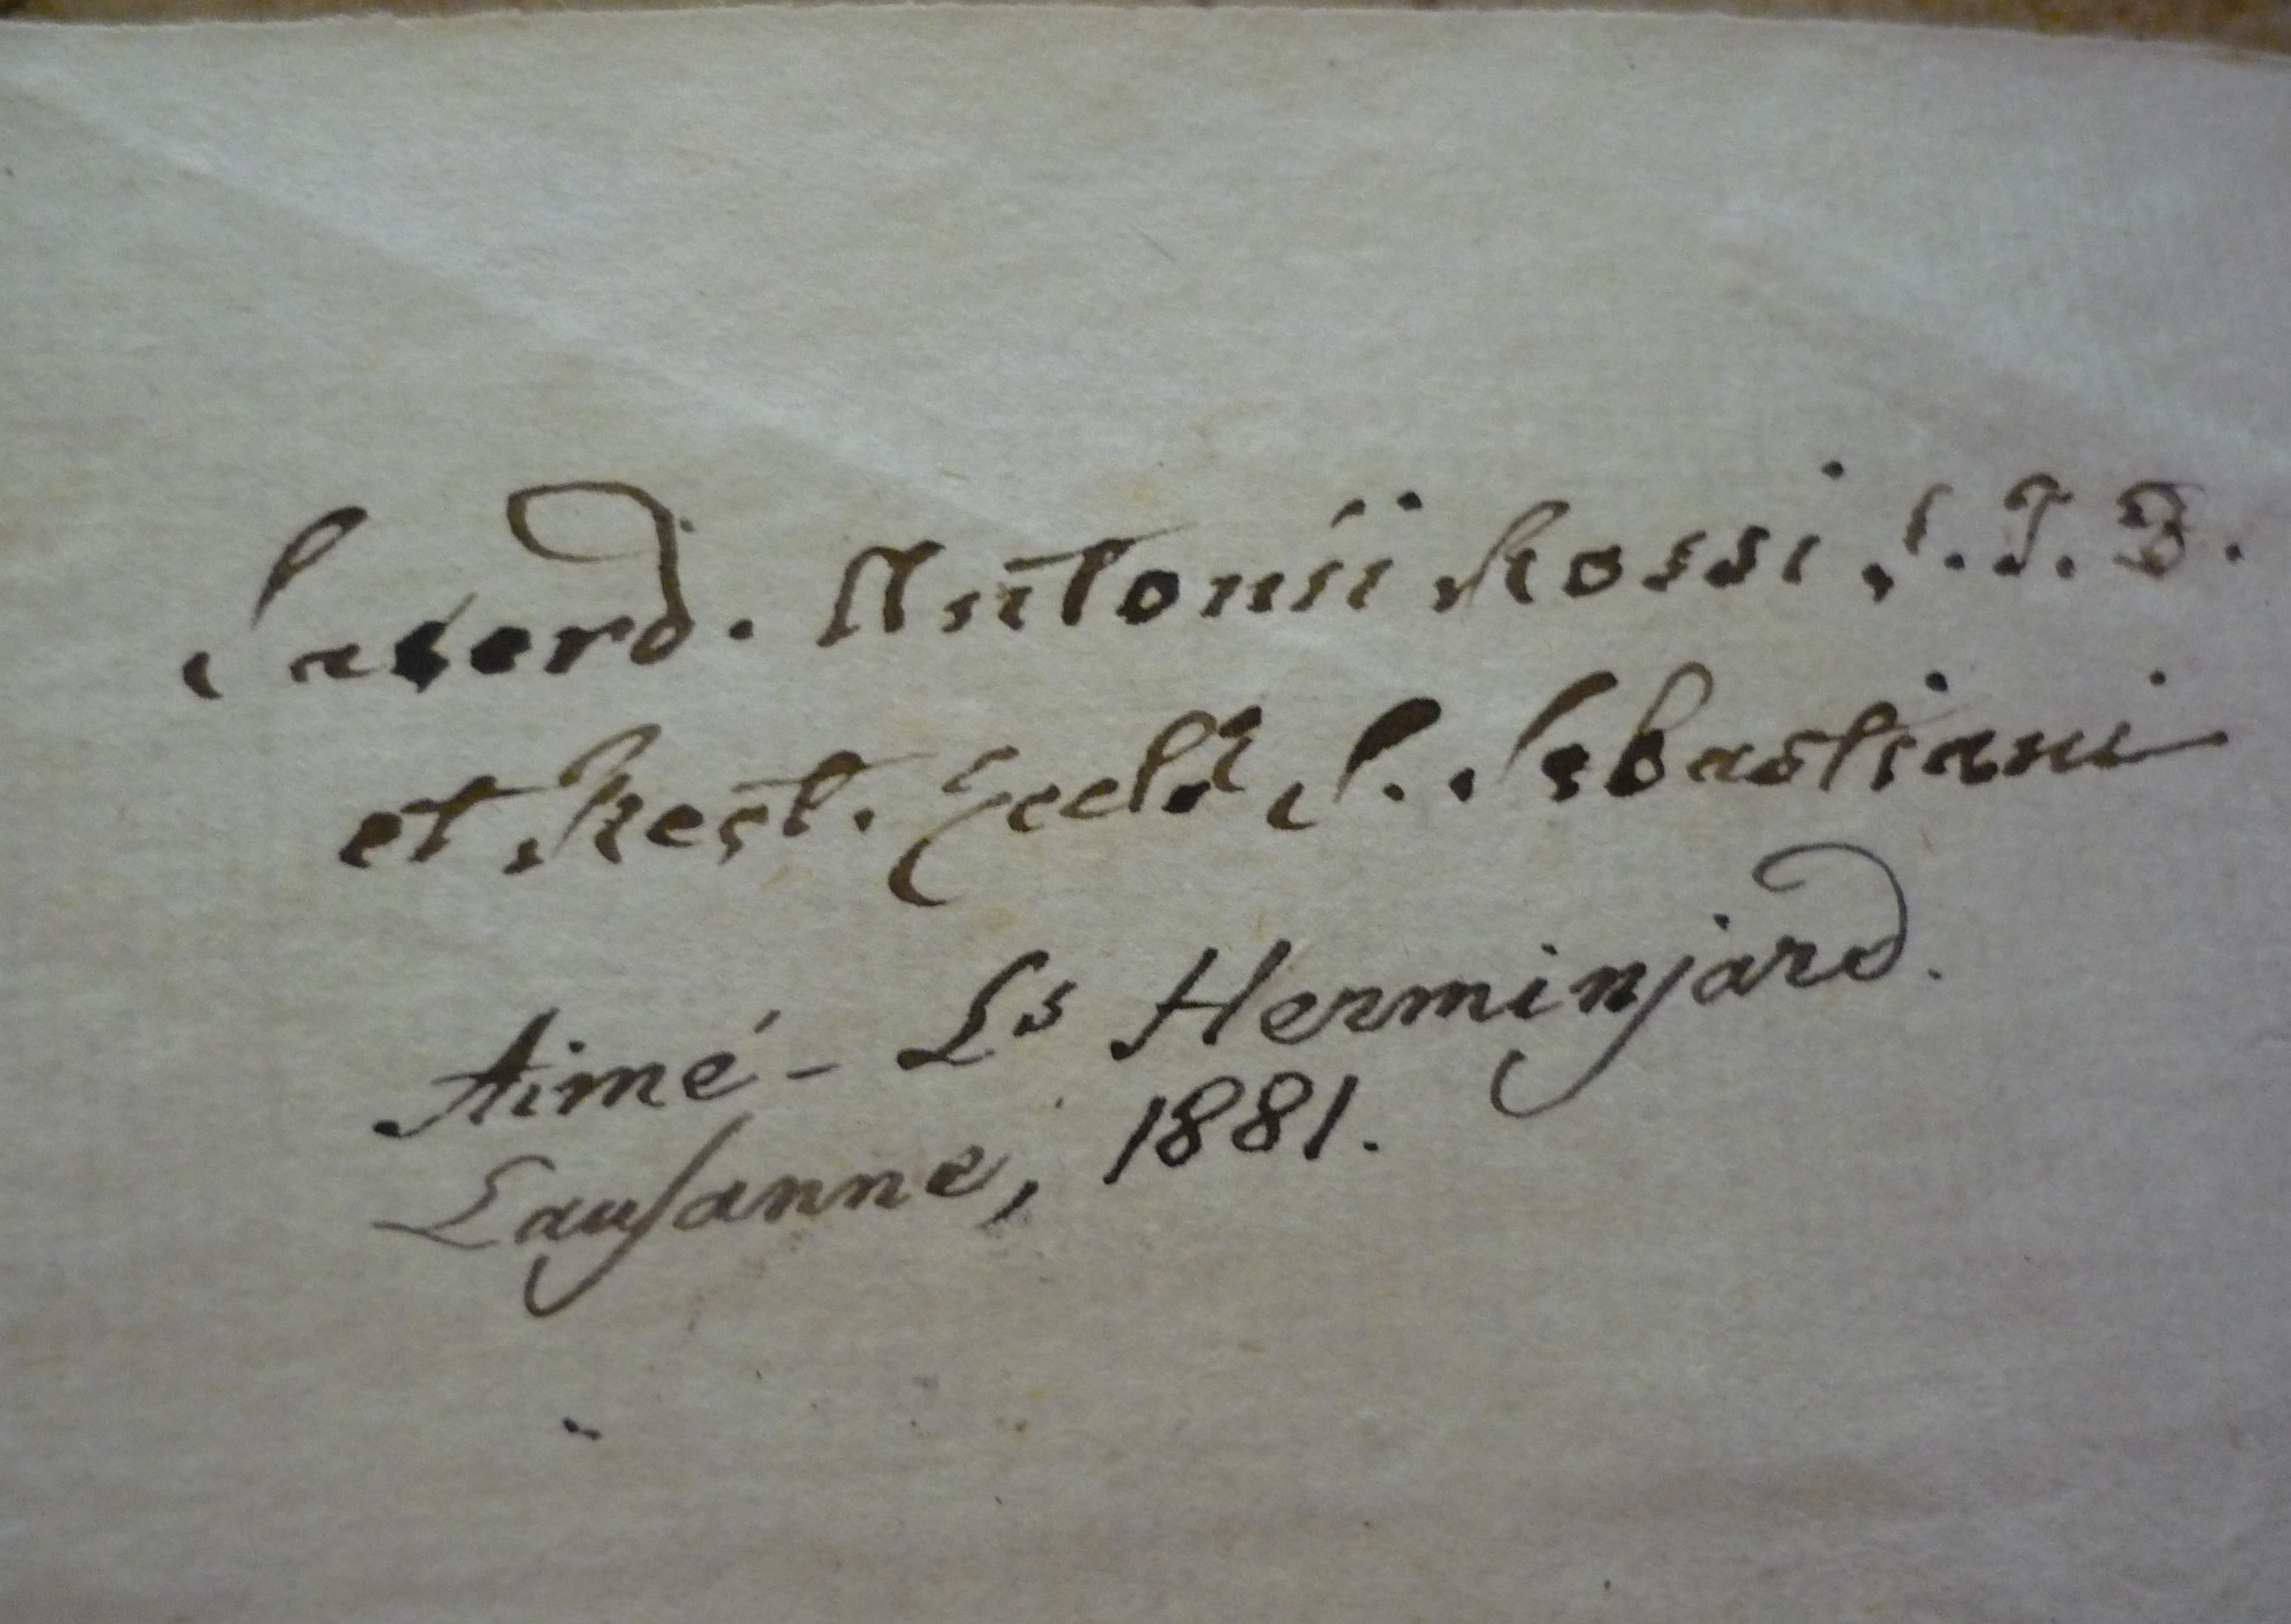 Sacerd. Antonii Rossi, S. T. D.
et Rect. Eccl.æ S. Sebastiani
Aimé - Ls Herminjard.
Lausanne, 1881.